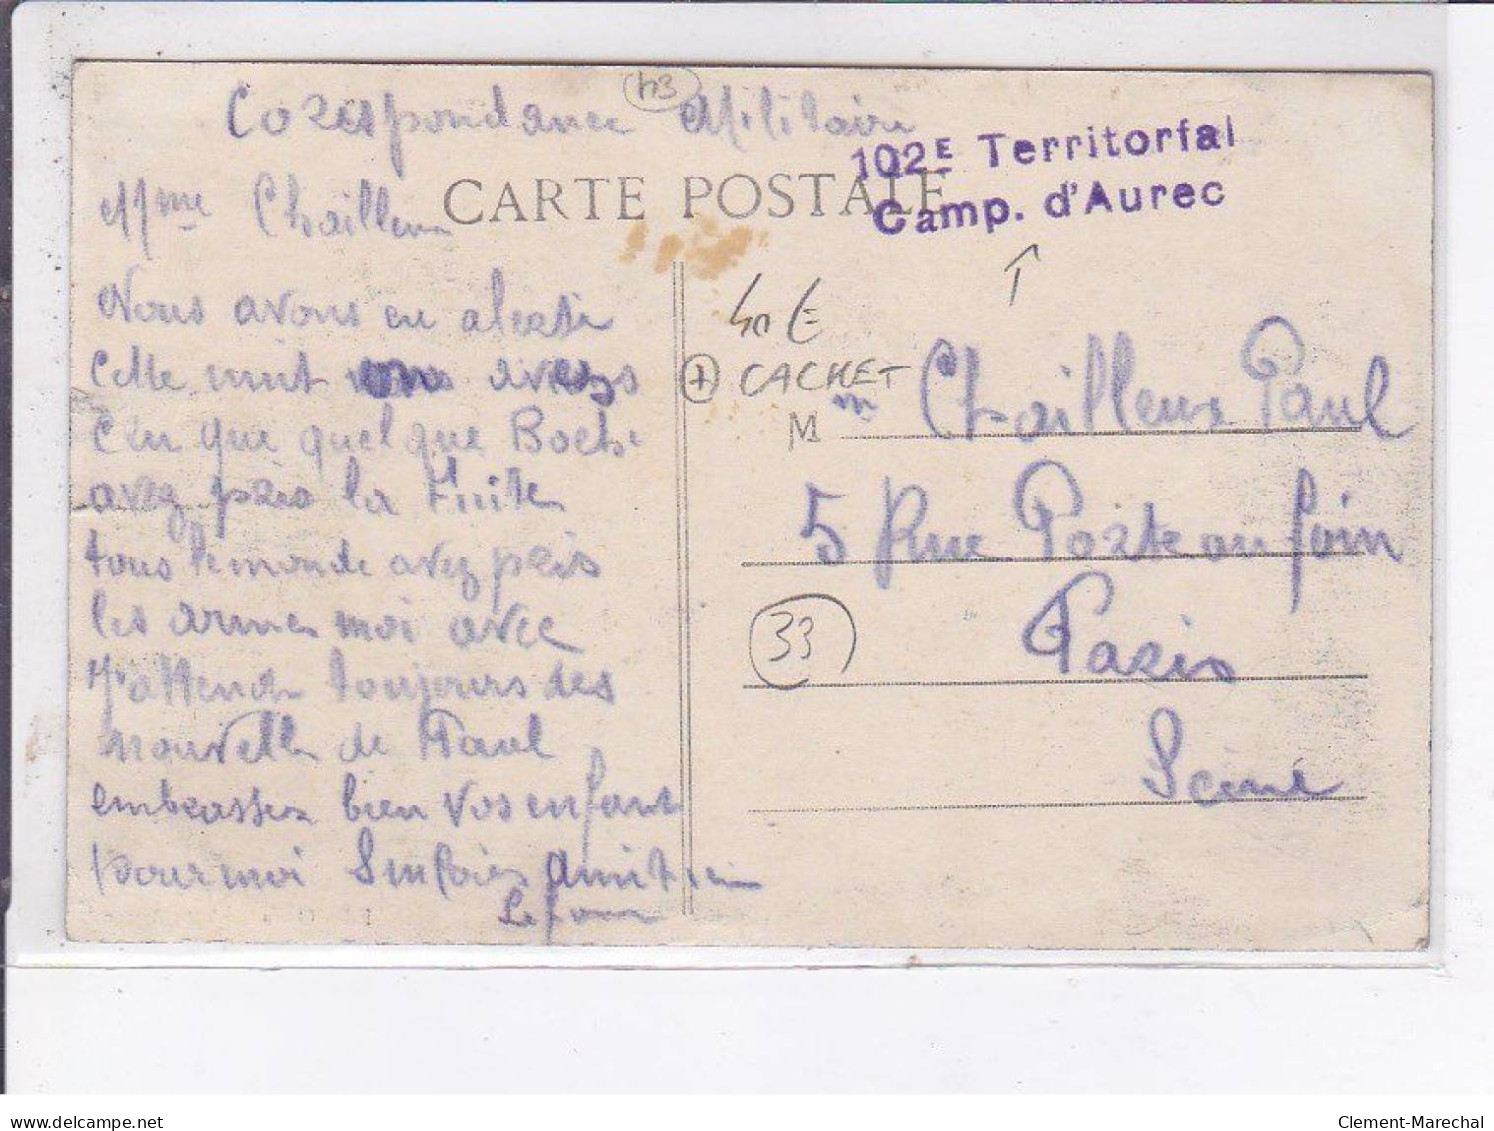 43
Corespondance Militaire
102E Territorfal
Camp. d'Aurec
CARTE POSTALE
Mme Chailleux
Nous avons eu alerte
cette nuit avez
cru que quelque Boche
avez pris la Fuite
tous le monde avez pris
les armes moi avec
J'attend toujours des
nouvelle de Paul
embrasser bien vos enfant
pour moi amitié
40 E
+ CACHET
Mm Chailleux Paul
5 Rue Porte au foin
33
Paris
Seine
delcampe.net
Clement-Marechal